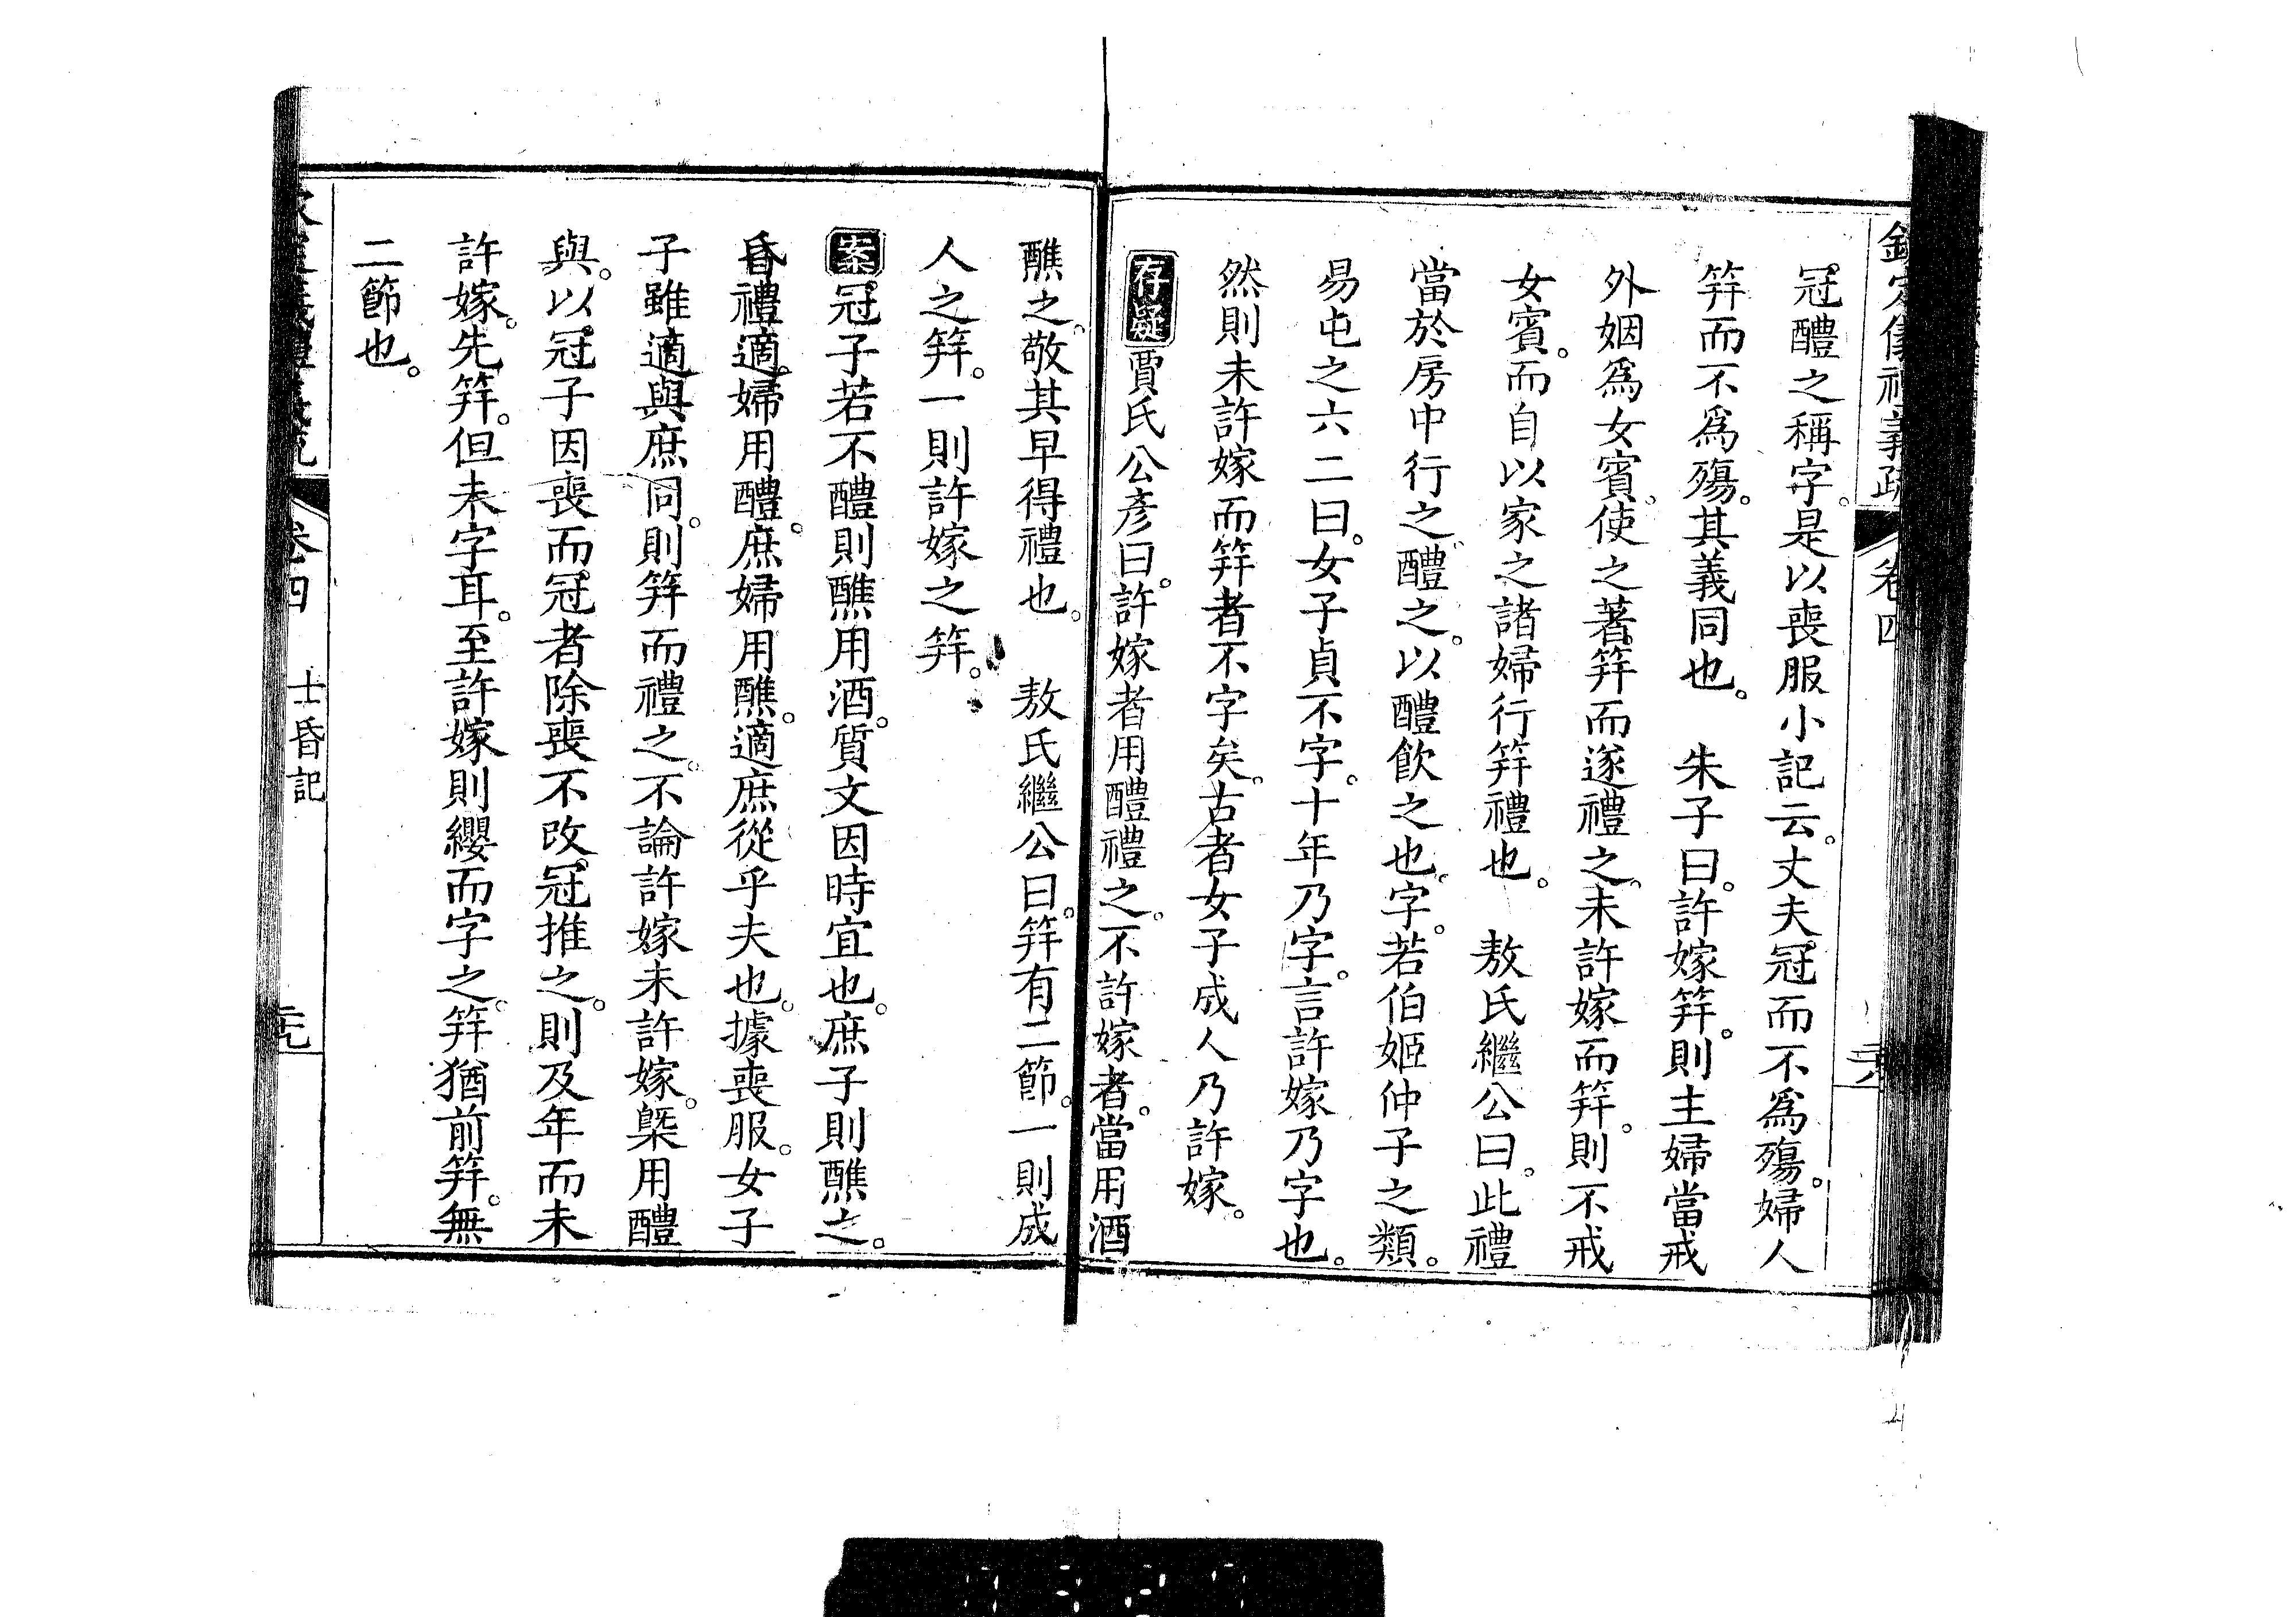 欽定儀禮義疏 卷四
冠醴之稱字。是以喪服小記云。丈夫冠而不爲殤。婦人
筓而不爲殤。其義同也。 朱子曰。許嫁筓。則主婦當戒
外姻爲女賓。使之著筓而遂禮之。未許嫁而筓。則不戒
女賓。而自以家之諸婦行筓禮也。 敖氏繼公曰。此禮
當於房中行之。醴之。以醴飲之也。字。若伯姬仲子之類。
易屯之六二曰。女子貞不字。十年乃字。言許嫁乃字也。
然則未許嫁而筓者不字矣。古者女子成人乃許嫁。
存疑賈氏公彥曰。許嫁者用醴禮之。不許嫁者。當用酒
醮之。敬其早得禮也。 敖氏繼公曰。筓有二節。一則成
人之筓。一則許嫁之筓。
案冠子若不醴則醮用酒。質文因時宜也。庶子則醮之。
昏禮適婦用醴。庶婦用醮。適庶從乎夫也。據喪服。女子
子雖適與庶同。則筓而禮之。不論許嫁未許嫁。槩用醴
與。以冠子因喪而冠者除喪不改冠推之。則及年而未
許嫁。先筓。但未字耳。至許嫁則纓而字之。筓猶前筓。無
二節也。
卷四 士昏記